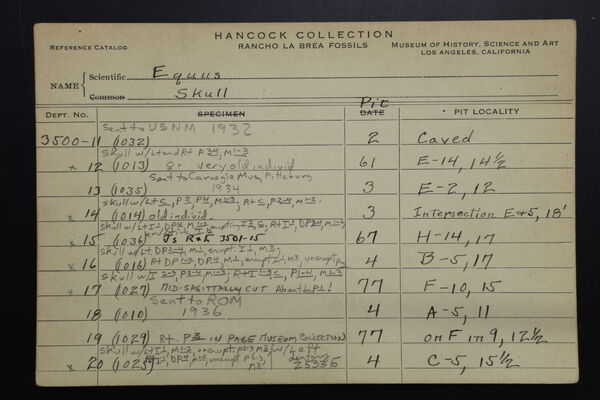 HANCOCK COLLECTION
REFERENCE CATALOG RANCHO LA BREA FOSSILS MUSEUM OF HISTORY, SCIENCE AND ART
LOS ANGELES, CALIFORNIA
NAME { Scientific Equus
Common Skull
DEPT. No. SPECIMEN Pit DATE PIT LOCALITY
Sent to USNM 1932
3500-11 (1032) 2 Caved
Skull w/ Lt and Rt P3-4, M1-3
x 12 (1013) very old individ 61 E-14, 14½
Sent to Carnegie Mus, Pittsburg
13 (1035) 1934 3 E-2, 12
Skull w/ Lt C, P3, P4, M1-3, Rt C, P2-4, M1-3.
x 14 (1014) old individ. 3 Intersection E+5, 18'
Skull w/ Lt I1, DP
x 15 (1036) J's R+L J501-15 67 H-14, 17
Skull w/ Lt. DP2-4, M1, erupt. I1, M2.
x 16 (1016) Rt DP DP4, M1, erupt I1, M2, unerupt 4 B-5, 17
Skull w/ I2-3, P2-4, M1-3; Rt I1-3, C, P1-4, M1-3
x 17 (1027) MID-SAGITTALLY CUT Absent to P1! 77 F-10, 15
Sent to ROM
18 (1010) 1936 4 A-5, 11
19 (1029) Rt. P2 IN PAGE MUSEUM COLLECTION 77 on F in 9, 12½
Skull w/ Lt I1, M1-2, unerupt. w/ Left
x 20 (1025) Rt I1, DP4, unerupt dentary 25336 4 C-5, 15½